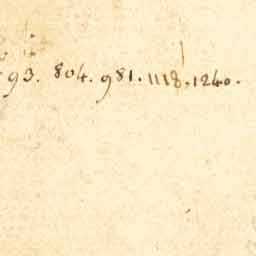 93. 804. 981. 1118. 1240.